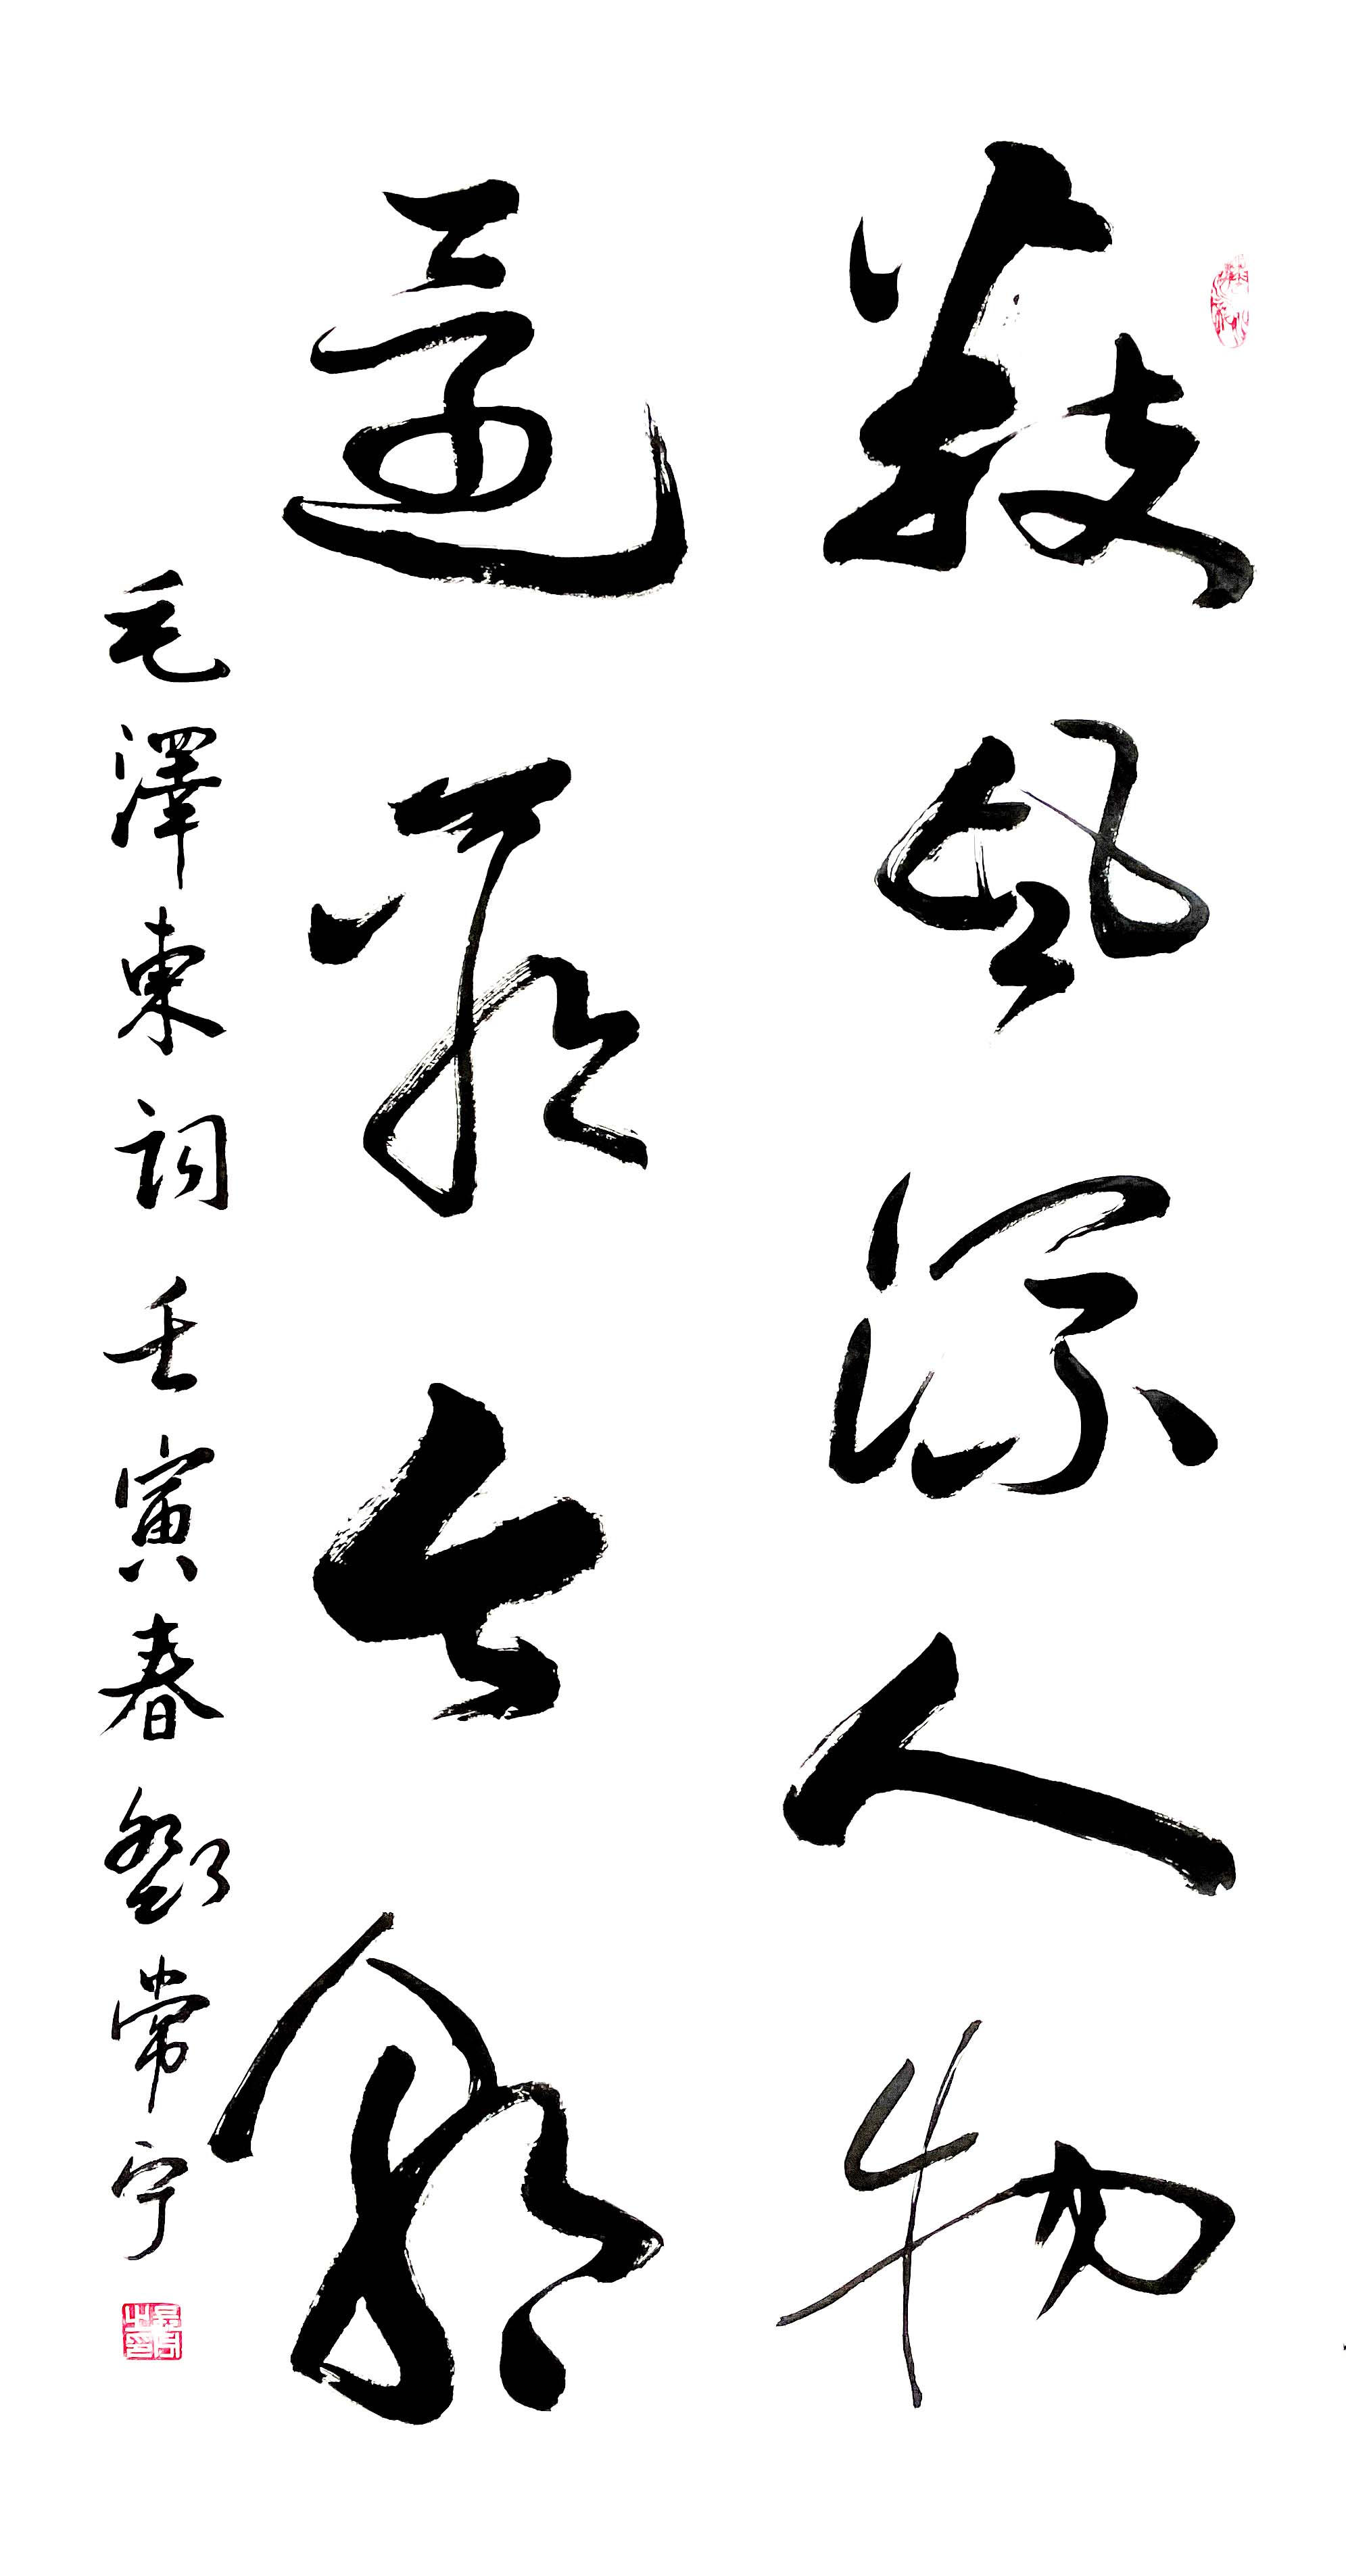 數風流人物
還看今朝
毛澤東詞壬寅春劉常宁